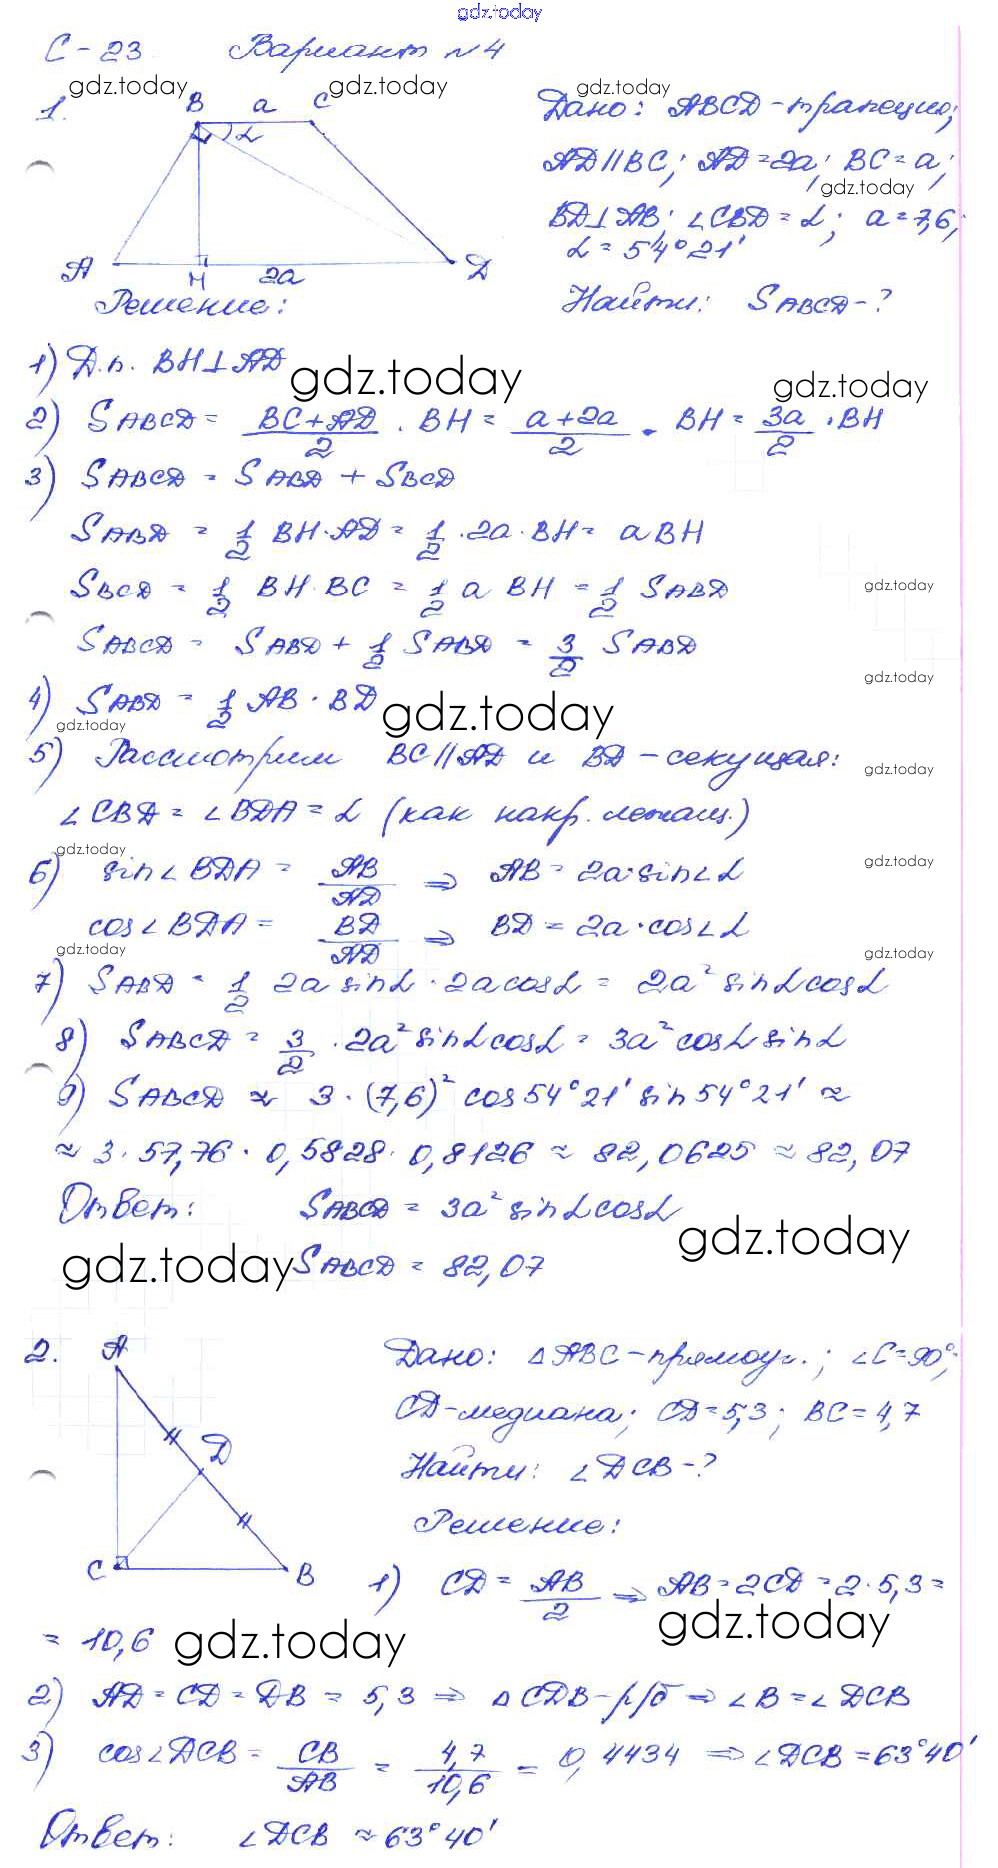 gdz.today
С-23 Вариант №4
gdz.today gdz.today gdz.today
1.
B a C
α
A H 2a D
Дано: ABCD-трапеция;
AD∥BC; AD=2a; BC=a;
gdz.today
BD⊥AB; ∠CBD=α; a=7,6;
α=54°21'
Найти: SABCD-?
Решение:
1) Д.п. BH⊥AD
gdz.today gdz.today
2) SABCD = (BC+AD)/2 · BH = (a+2a)/2 · BH = 3a/2 · BH
3) SABCD = SABD + SBCD
SABD = 1/2 BH·AD = 1/2 · 2a · BH = aBH
SBCD = 1/2 BH·BC = 1/2 a BH = 1/2 SABD
gdz.today
SABCD = SABD + 1/2 SABD = 3/2 SABD
gdz.today
4) SABD = 1/2 AB · BD
gdz.today gdz.today
5) Рассмотрим BC∥AD и BD-секущая:
gdz.today
∠CBD = ∠BDA = α (как накр. лежащ.)
gdz.today gdz.today
6) sin∠BDA = AB/AD ⇒ AB = 2a·sin∠α
cos∠BDA = BD/AD ⇒ BD = 2a·cos∠α
gdz.today gdz.today
7) SABD = 1/2 2a sinα · 2a cosα = 2a² sinα cosα
8) SABCD = 3/2 · 2a² sinα cosα = 3a² cosα sinα
9) SABCD ≈ 3 · (7,6)² cos54°21' sin54°21' ≈
≈ 3 · 57,76 · 0,5828 · 0,8126 ≈ 82,0625 ≈ 82,07
Ответ: SABCD = 3a² sinα cosα
gdz.today gdz.today
SABCD = 82,07
2.
A
D
C B
Дано: △ABC-прямоуг.; ∠C=90°;
CD-медиана; CD=5,3; BC=4,7
Найти: ∠DCB-?
Решение:
1) CD = AB/2 ⇒ AB=2CD=2·5,3=
= 10,6
gdz.today gdz.today
2) AD=CD=DB=5,3 ⇒ △CDB-р/б ⇒ ∠B=∠DCB
3) cos∠DCB = CB/AB = 4,7/10,6 = 0,4434 ⇒ ∠DCB=63°40'
Ответ: ∠DCB ≈ 63°40'